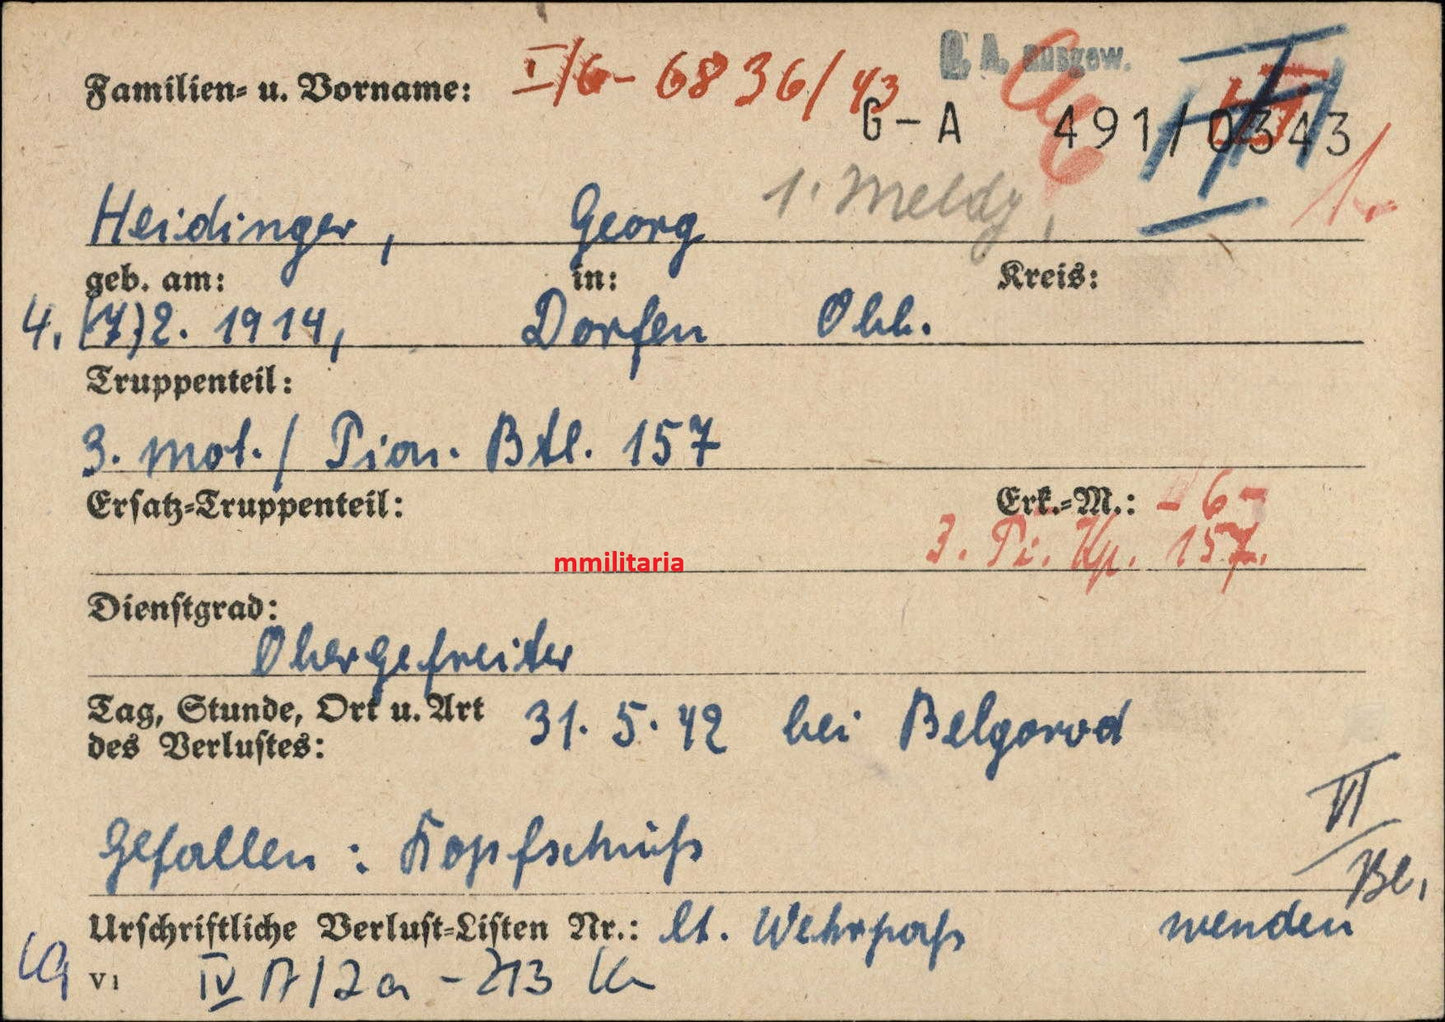 Familien- u. Vorname: I/6- 6836/43
G.A. ausgew.
G-A 491/0343
Heidinger, Georg 1. Meldg.
geb. am: in: Kreis:
4. (7.) 2. 1914, Dorfen Obb.
Truppenteil:
3. mot./ Pion. Btl. 157
Ersatz-Truppenteil: Erk.-M.: - 6 -
3. Pi. Kp. 157.
mmilitaria
Dienstgrad:
Obergefreiter
Tag, Stunde, Ort u. Art
des Verlustes: 31. 5. 42 bei Belgorod
VI
Gefallen: Kopfschuß
Bl.
Urschriftliche Verlust-Listen Nr.: lt. Wehrpaß wenden
V1